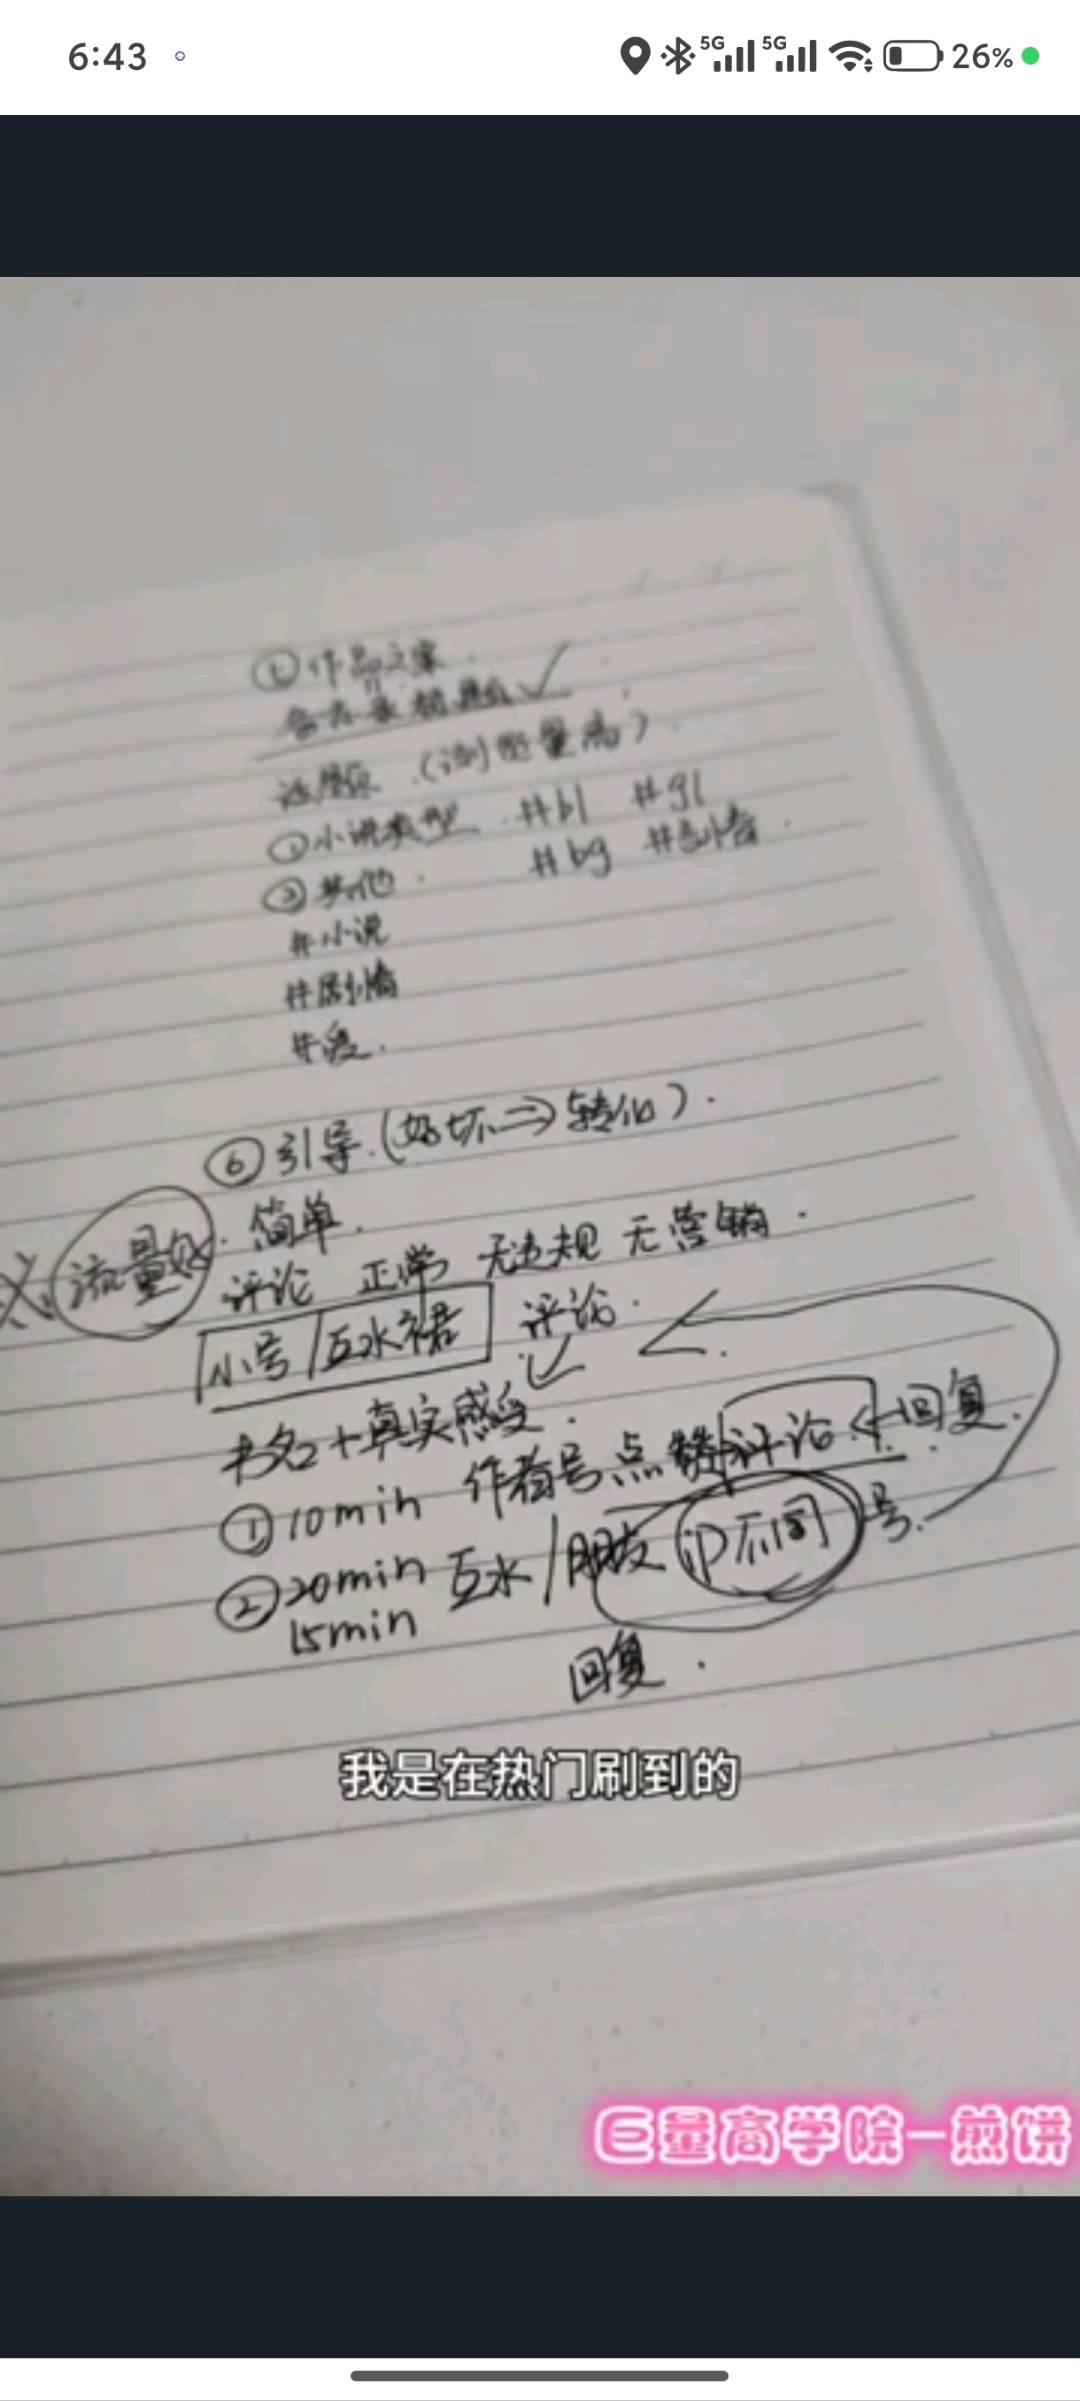 6:43
5G 5G 26%
话题(浏览量高)
①小说类型 #bl #gl
#bg #剧情
②其他
#小说
#剧情
#爱.
⑥引导.(好坏⇒转化).
流量好. 简单.
评论 正常 无违规 无营销.
小号/互水裙 评论.
书名+真实感受.
①10min 作者号点赞评论←回复.
②20min 互水/朋友 ip不同号.
15min
回复.
我是在热门刷到的
巨量商学院一煎饼